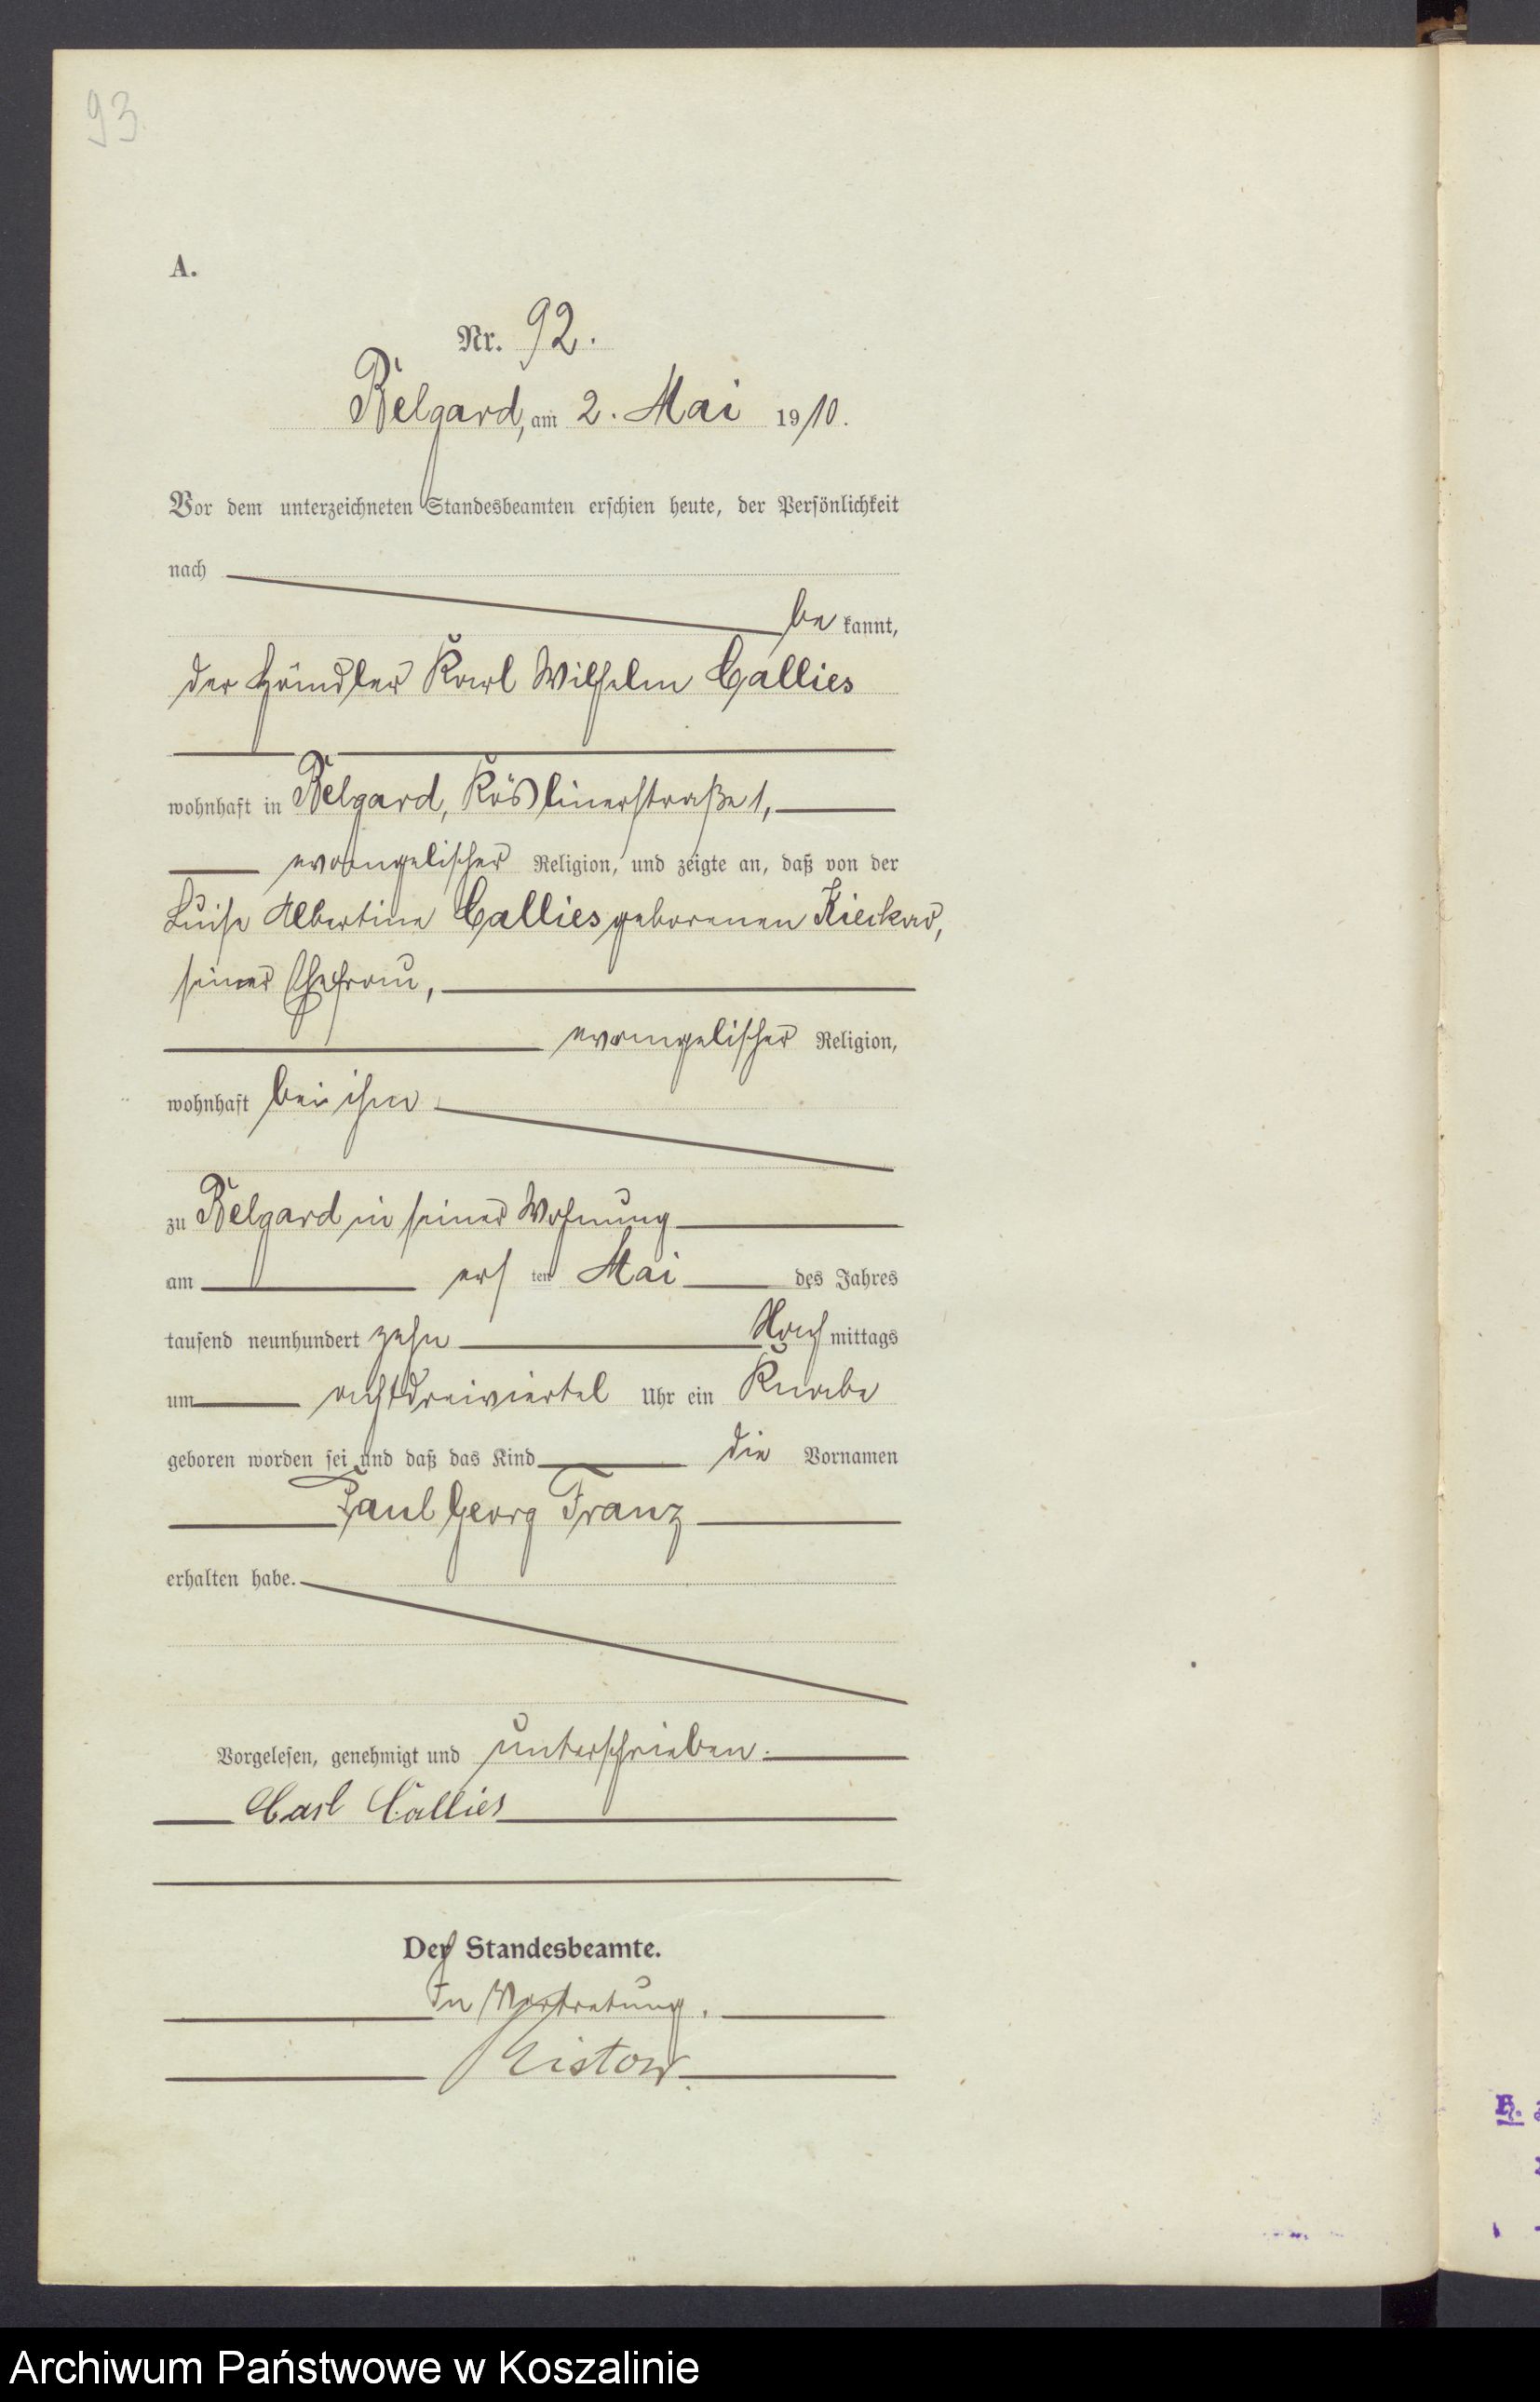 93.
A.
Nr. 92.
Belgard, am 2. Mai 1910.
Vor dem unterzeichneten Standesbeamten erschien heute, der Persönlichkeit
nach
be kannt,
der Händler Karl Wilhelm Callies
wohnhaft in Belgard, Köslinerstraße 1,
evangelischer Religion, und zeigte an, daß von der
Luise Albertine Callies geborenen Kieckar,
seiner Ehefrau,
evangelischer Religion,
wohnhaft bei ihm
zu Belgard in seiner Wohnung
am ers ten Mai des Jahres
tausend neunhundert zehn Nach mittags
um achtdreiviertel Uhr ein Knabe
geboren worden sei und daß das Kind die Vornamen
Paul Georg Franz
erhalten habe.
Vorgelesen, genehmigt und unterschrieben.
Carl Callies
Der Standesbeamte.
In Vertretung.
Archiwum Państwowe w Koszalinie